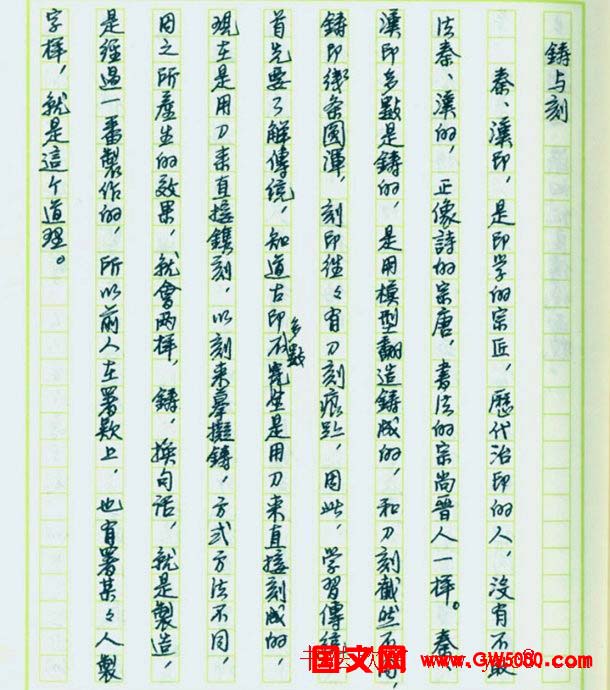 鑄与刻
秦、漢印，是印学的宗匠，歷代治印的人，沒有不
法秦、漢的，正像詩的宗唐，書法的宗尚晉人一樣。秦
漢印多數是鑄的，是用模型翻造鑄成的，和刀刻截然不
鑄印綫条圓渾，刻印往々有刀刻痕跡，因此，學習傳統
首先要了解傳統，知道古印多數不是用刀来直接刻成的，
現在是用刀来直接鐫刻，以刻来摹擬鑄，方式方法不同，
因之所產生的效果，就會两樣，鑄，換句話，就是製造，
是經過一番製作的，所以前人在署款上，也有署某々人製
字樣，就是這个道理。
国文网 www.GW5000.com